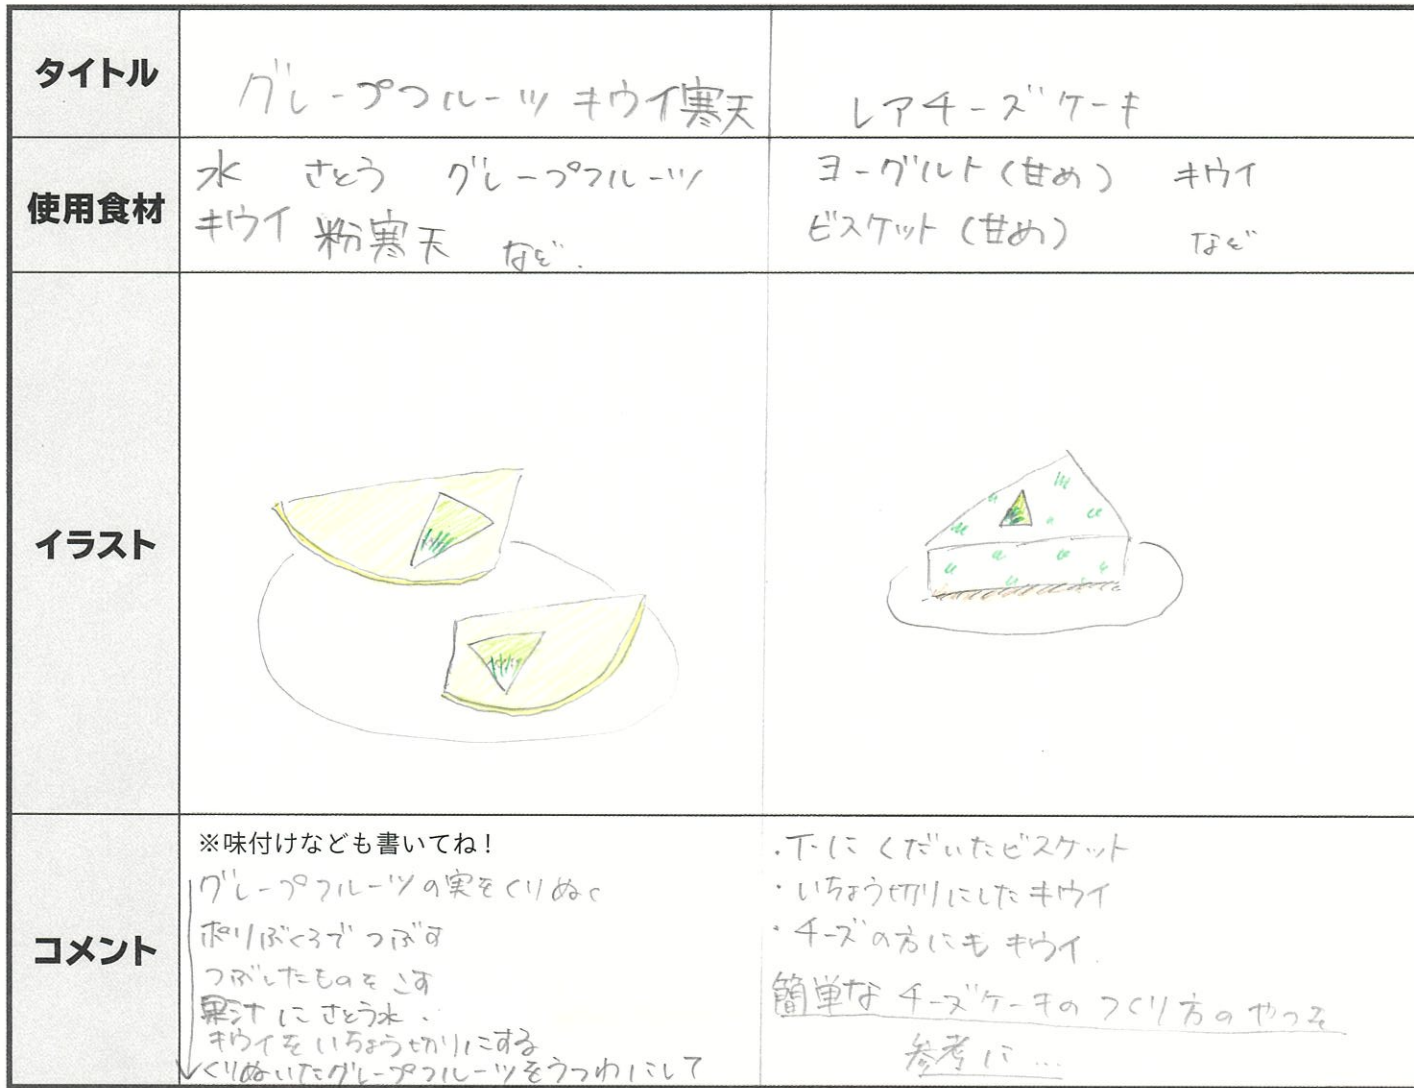 タイトル
グレープフルーツ キウイ寒天
レアチーズケーキ
使用食材
水 さとう グレープフルーツ
キウイ 粉寒天 など.
ヨーグルト(甘め) キウイ
ビスケット(甘め) など
イラスト
コメント
※味付けなども書いてね!
グレープフルーツの実をくりぬく
ポリぶくろでつぶす
つぶしたものをこす
果汁にさとう水.
キウイをいちょう切りにする
くりぬいたグレープフルーツをうつわにして
・下にくだいたビスケット
・いちょう切りにしたキウイ
・チーズの方にもキウイ.
簡単なチーズケーキのつくり方のやつを
参考に…